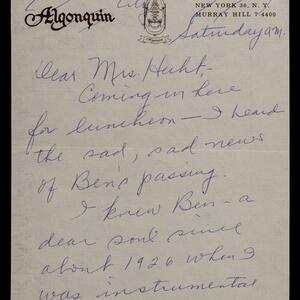 Algonquin
City
NEW YORK 36, N. Y.
MURRAY HILL 7-4400
Saturday a.m.
Dear Mrs. Hecht,-
Coming in here
for luncheon – I heard
the sad, sad news
of Ben's passing.
I knew Ben – a
dear soul since
about 1926 when I
was instrumental